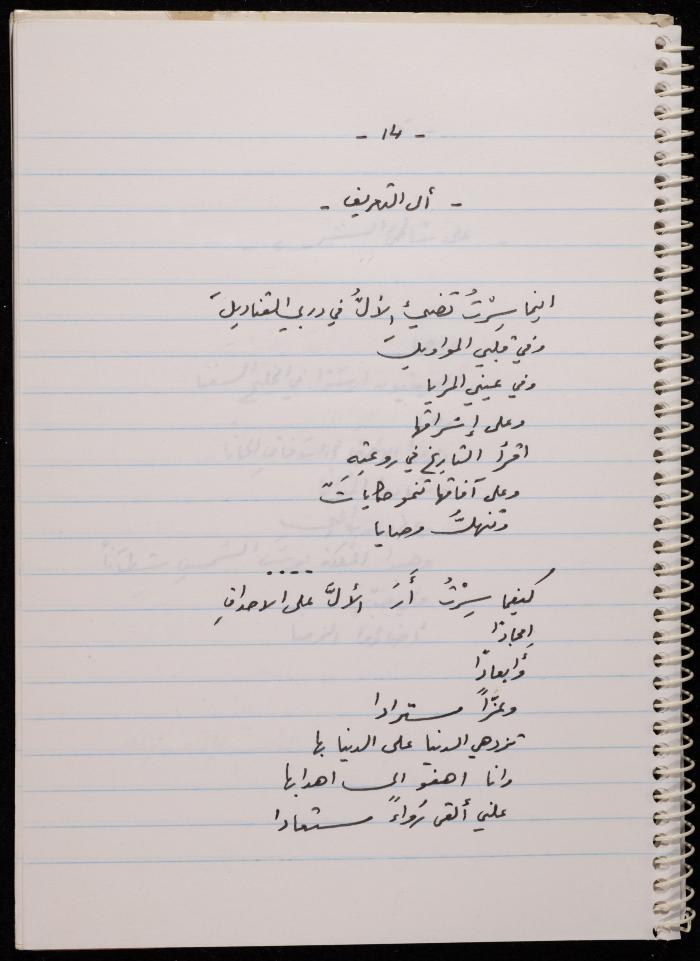 - ١٤ -
- أل التعريف -
اينما سِرْتُ تضيئُ الألُّ في دربي القناديلَ
وفي قلبي المواويلَ
وفي عيني المرايا
وعلى إشراقها
اقرأ التاريخ في روعتِهِ
وعلى آفاقها تنمو حكايات
وتنهلُّ وصايا
....
كيفما سِرْتُ أَرَ الألَّ على الاحداقِ
امجادًا
وأبعادًا
وعزّاً مسترادا
تزدهي الدنيا على الدنيا بها
وانا اهفو الى اهدابها
علني ألقى رُواءً مستعادا